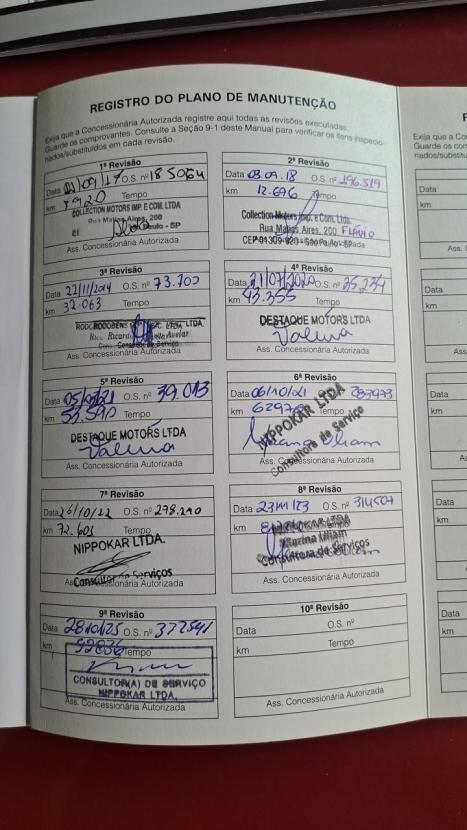 REGISTRO DO PLANO DE MANUTENÇÃO
Exija que a Concessionária Autorizada registre aqui todas as revisões executadas.
Guarde os comprovantes. Consulte a Seção 9-1 deste Manual para verificar os itens inspecio-
nados/substituídos em cada revisão.
1ª Revisão
Data 01/09/17 O.S. nº 185064
km 7920 Tempo
COLLECTION MOTORS IMP. E COM. LTDA
Rua Matias Aires, 200
Paulo - SP
Ass. Concessionária Autorizada
2ª Revisão
Data 03.09.18 O.S. nº 196.519
km 12.696 Tempo
Collection Motors Imp. e Com. Ltda.
Rua Matias Aires, 200 FLÁVIO
CEP 01309-020 - São Paulo - SP
Ass. Concessionária Autorizada
3ª Revisão
Data 22/11/2019 O.S. nº 73.700
km 32.063 Tempo
Ass. Concessionária Autorizada
4ª Revisão
Data 21/07/2020 O.S. nº 35.234
km 43.355 Tempo
DESTAQUE MOTORS LTDA
Ass. Concessionária Autorizada
5ª Revisão
Data 05/03/21 O.S. nº 39.013
km 53.590 Tempo
DESTAQUE MOTORS LTDA
Ass. Concessionária Autorizada
6ª Revisão
Data 06/10/21
km
NIPPOKAR LTDA
Consultora de Serviço
Ass. Concessionária Autorizada
7ª Revisão
Data 26/10/22 O.S. nº 278.210
km 72.601 Tempo
NIPPOKAR LTDA.
Consultor de Serviços
Autorizada
8ª Revisão
Data O.S. nº 314507
km
NIPPOKAR LTDA
Consultora de Serviços
Ass. Concessionária Autorizada
9ª Revisão
Data 28/10/25 O.S. nº 377541
km 92836 Tempo
CONSULTOR(A) DE SERVIÇO
NIPPOKAR LTDA.
Ass. Concessionária Autorizada
10ª Revisão
Data O.S. nº
km Tempo
Ass. Concessionária Autorizada